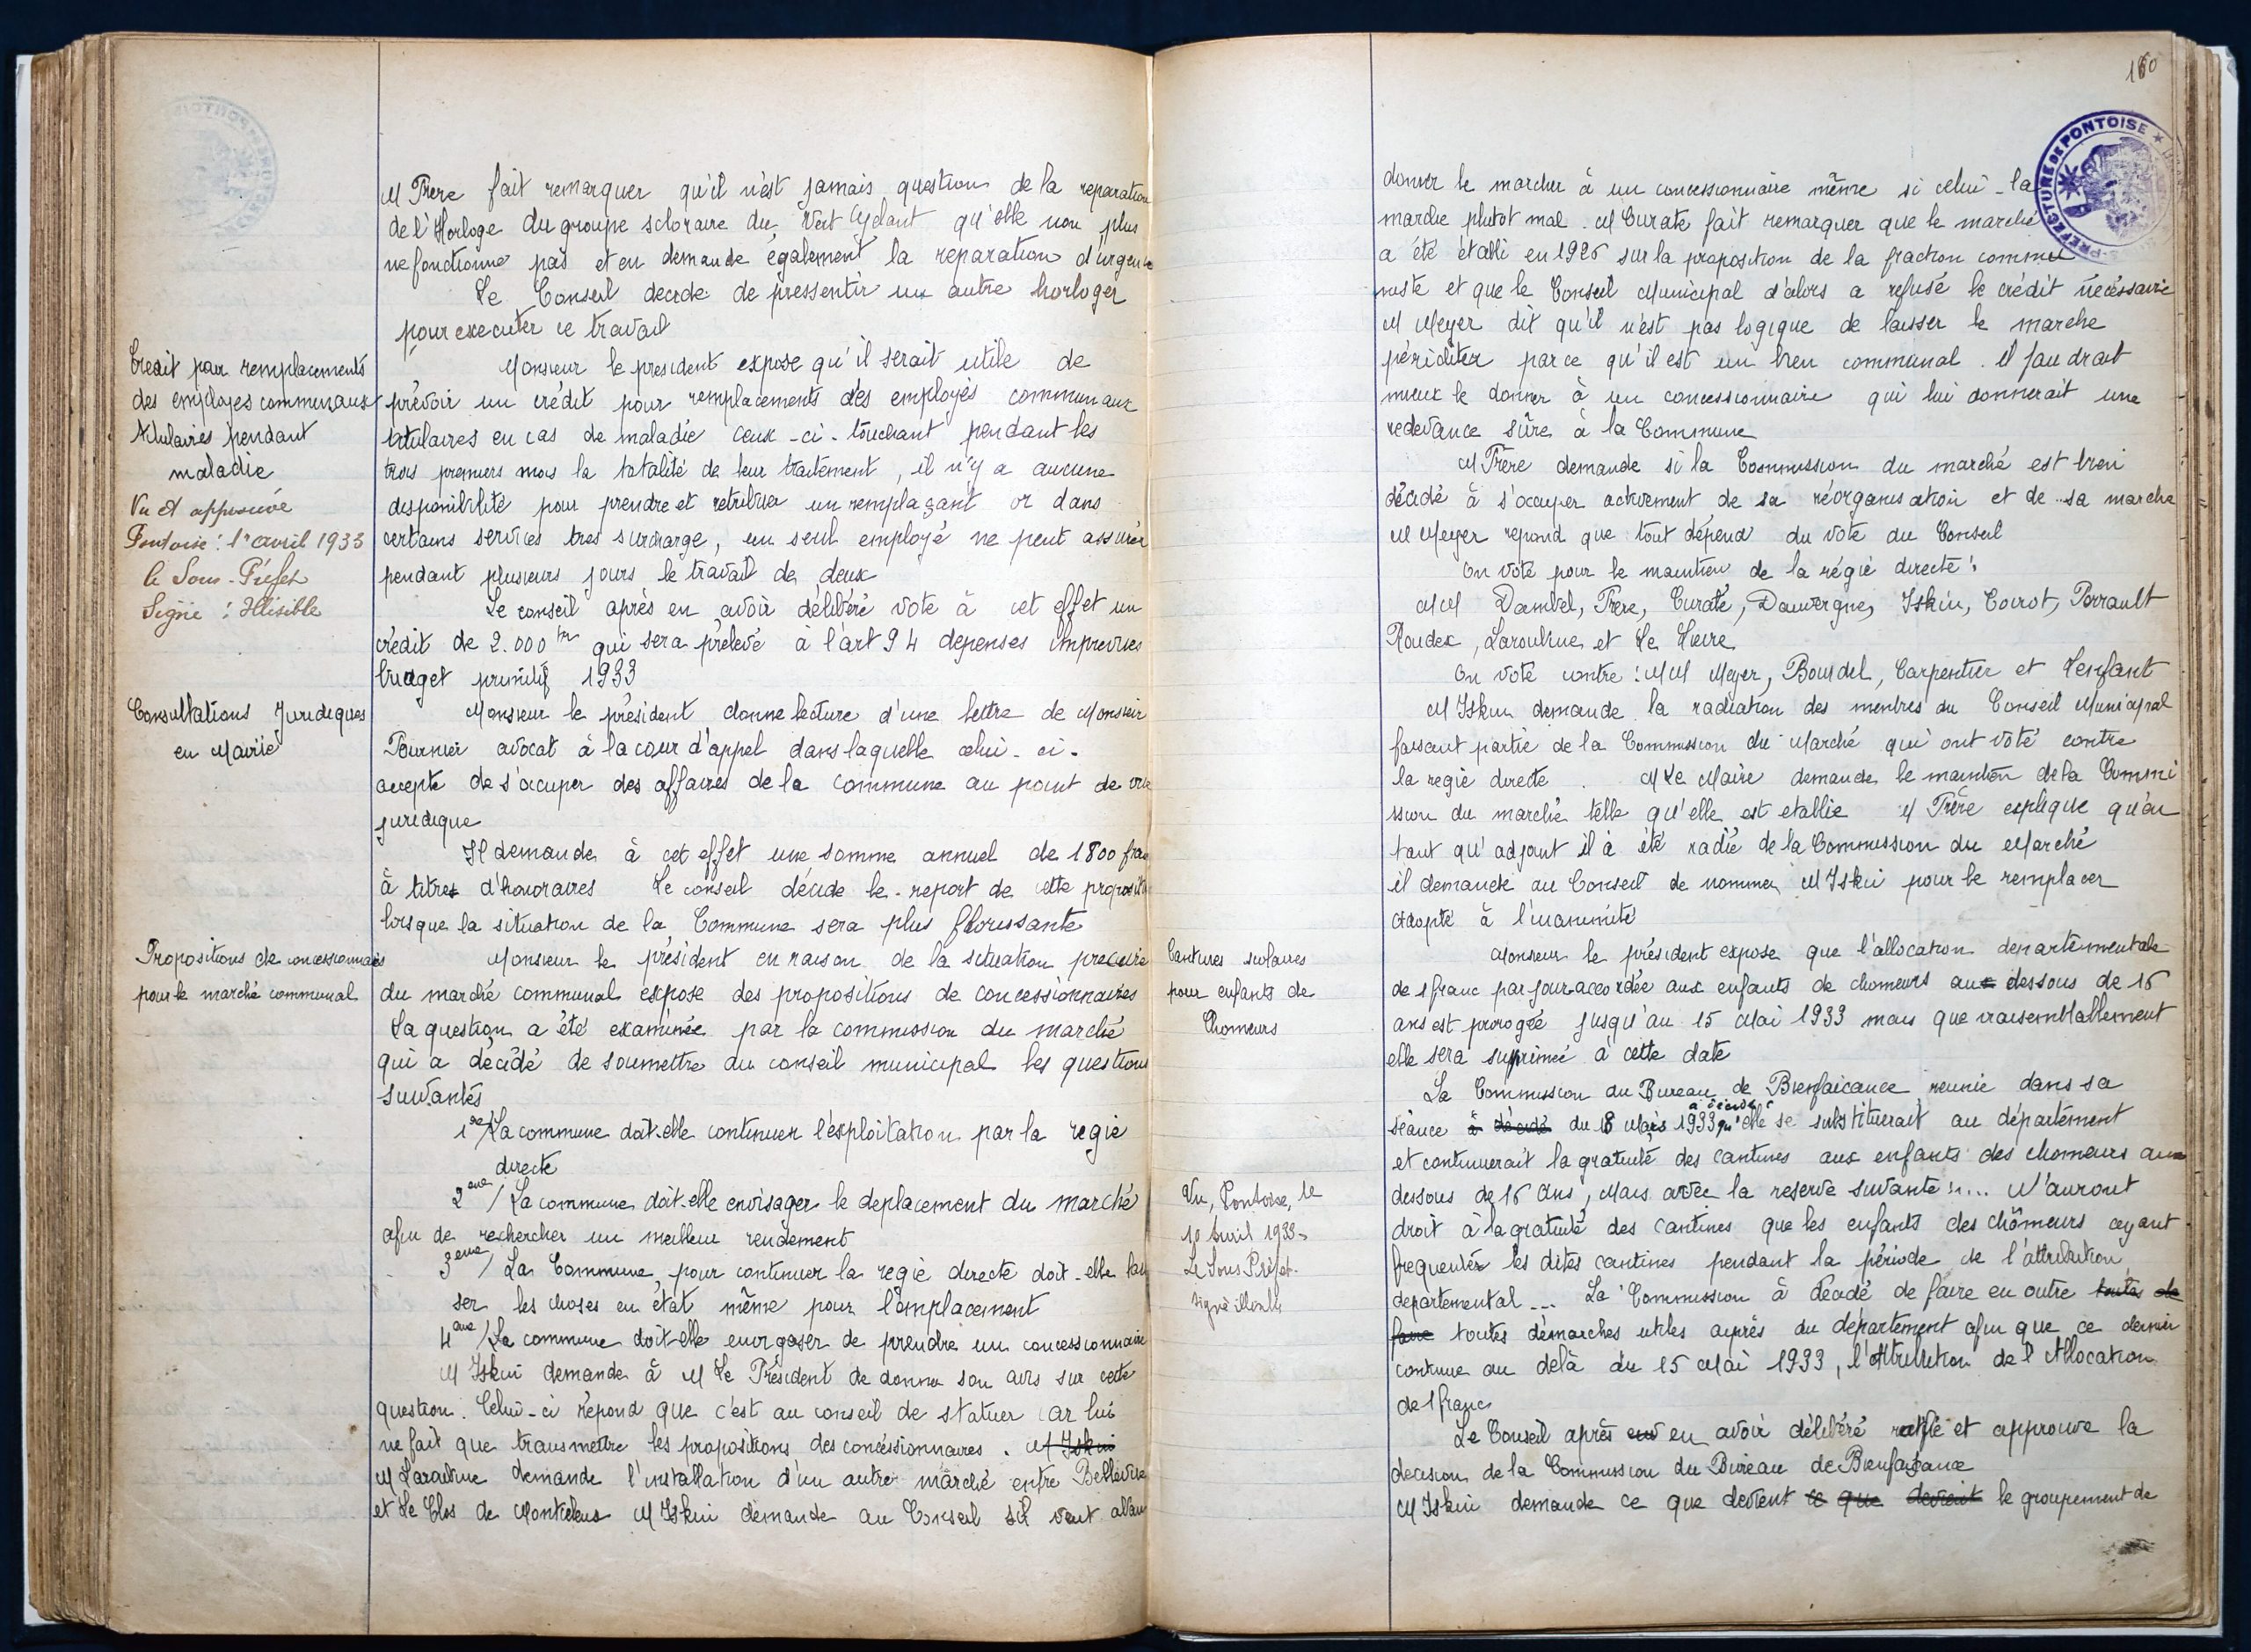 M Frère fait remarquer qu'il n'est jamais question de la reparation
de l'Horloge du groupe scloraire du Vert Gydant qu'elle non plus
ne fonctionne pas et en demande également la reparation d'urgence
Le Conseil decide de pressentir un autre horloger
pour executer ce travail
Credit pour remplacements
des employes communaux
titulaires pendant
maladie
Vu et approuvée
Pontoise : 1er avril 1933
le Sous-Préfet
Signé : Illisible
Monsieur le president expose qu'il serait utile de
prévoir un crédit pour remplacements des employés communaux
titulaires en cas de maladie ceux-ci-touchant pendant les
trois premiers mois la totalité de leur traitement, il n'y a aucune
disponibilité pour prendre et retribuer un remplaçant or dans
certains services tres surcharge, un seul employé ne peut assurer
pendant plusieurs jours le travail de deux
Le conseil après en avoir délibéré vote à cet effet un
crédit de 2.000 frs qui sera prélevé à l'art 94 depenses imprevues
budget primitif 1933
Consultations Juridiques
en Mairie
Monsieur le président donne lecture d'une lettre de Monsieur
Fournier avocat à la cour d'appel dans laquelle celui-ci-
accepte de s'occuper des affaires de la commune au point de vue
juridique
Il demande à cet effet une somme annuel de 1800 frau
à titres d'honoraires Le conseil décide le-report de cette proposition
lorsque la situation de la Commune sera plus florissante
Propositions de concessionnaires
pour le marché communal
Monsieur le président en raison de la situation precaire
du marché communal expose des propositions de concessionnaires
La question a été examinée par la commission du marché
qui a décidé de soumettre au conseil municipal les questions
suivantes
1re/ La commune doit-elle continuer l'exploitation par la regie
directe
2eme/ La commune doit-elle envisager le deplacement du marché
afin de rechercher un meilleur rendement
3eme/ La Commune pour continuer la regie directe doit-elle lais
ser les choses en état même pour l'emplacement
4eme/ La commune doit-elle envisager de prendre un concessionnaire
M Iskin demande à M Le Président de donner son avis sur cette
question. Celui-ci répond que c'est au conseil de statuer car lui
ne fait que transmettre les propositions des concessionnaires. M Iskin
M Laroutine demande l'installation d'un autre marché entre Bellevue
et Le Clos de M Iskin demande au Conseil s'il veut aban
160
SOUS-PREFECTURE DE PONTOISE
donner le marcher à un concessionnaire même si celui-la
marche plutot mal. M Curate fait remarquer que le marché
a été établi en 1926 sur la proposition de la fraction commu
niste et que le Conseil Municipal d'alors a refusé le crédit nécéssaire
M Meyer dit qu'il n'est pas logique de laisser le marche
péricliter parce qu'il est un bien communal. il faudrait
mieux le donner à un concessionnaire qui lui donnerait une
redevance sûre à la Commune
M Frère demande si la Commission du marché est bien
décidé à s'occuper activement de sa réorganisation et de sa marche
M Meyer repond que tout dépend du vote du Conseil
on voté pour le maintien de la régie directe :
MM Dambel, Frère, Curate, Dauvergne, Iskin, Coirot, Perrault
Roudex, Laroutine et Le Lieire
on voté contre : MM Meyer, Bourdel, Carpentier et Lenfant
M Iskin demande la radiation des membres du Conseil Municipal
faisant partie de la Commission du Marché qui ont voté contre
la regie directe. M Le Maire demande le maintien de la Commi
ssion du marché telle qu'elle est etablie M Frère explique qu'en
tant qu'adjoint il à été radié de la Commission du Marché
il demande au Conseil de nommer M Iskin pour le remplacer
adopté à l'unanimité
Cantines scolaires
pour enfants de
Chomeurs
Monsieur le président expose que l'allocation départementale
de 1 franc par jour accordée aux enfants de chomeurs au dessous de 16
ans est prorogée jusqu'au 15 Mai 1933 mais que vraisemblablement
elle sera suprimée à cette date
La Commission du Bureau de Bienfaicance reunie dans sa
séance à décidé du 18 Mars 1933 a décidé qu'elle se substituerait au département
et continuerait la gratuité des cantines aux enfants des chomeurs au
dessous de 16 ans, Mais avec la reserve suivante :... N'auront
Vu, Pontoise, le
10 Avril 1933-
Le Sous-Préfet-
signé illisible
droit à la gratuité des cantines que les enfants des chômeurs ayant
frequenter les dites cantines pendant la période de l'attribution
departemental... La Commission à décidé de faire en outre toutes de
faire toutes démarches utiles auprès du département afin que ce dernier
continue au delà du 15 Mai 1933, l'attribution de l'Allocation
de 1 franc
Le Conseil après en avoir délibéré ratifie et approuve la
decision de la Commission du Bureau de Bienfaisance
M Iskin demande ce que devient ce que devient le groupement de